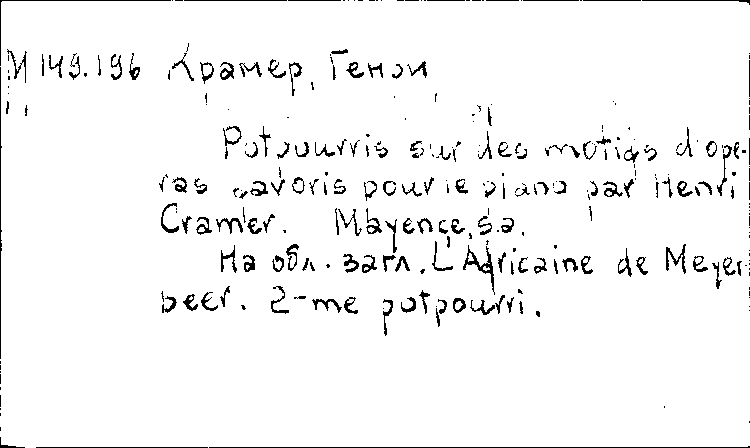 М 149.196 Крамер, Генри
Potpourris sur des motifs d'ope-
ras favoris pour le piano par Henri
Cramer. Mayence, s.a.
На обл. загл. L'Africaine de Meyer-
beer. 2-me potpourri.